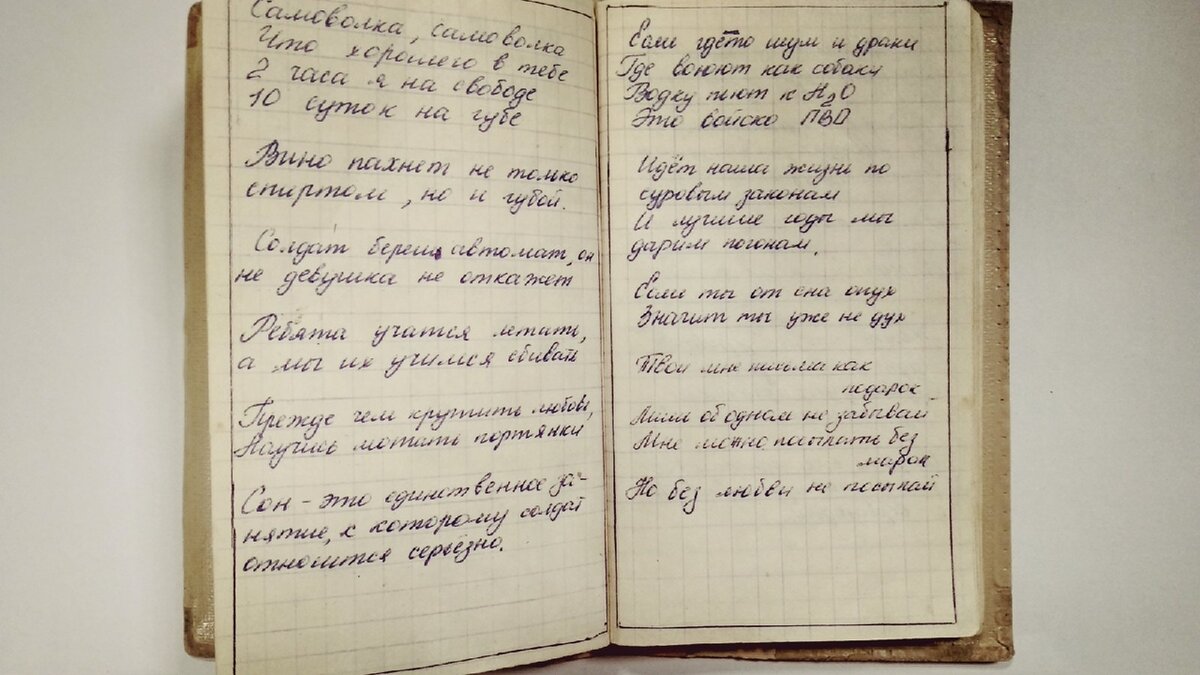 Самоволка, самоволка
Что хорошего в тебе
2 часа я на свободе
10 суток на губе
Вино пахнет не только
спиртом, но и губой.
Солдат береги автомат, он
не девушка не откажет
Ребята учатся летать,
а мы их учимся сбивать
Прежде чем крутить любовь,
Научись мотать портянки
Сон - это единственное за-
нятие, к которому солдат
относится серьёзно.
Если где то шум и драки
Где воюют как собаки
Водку пьют к H2O
Это войско ПВО
Идёт наша жизнь по
суровым законам
И лучшие годы мы
дарим погонам.
Если ты от сна опух
Значит ты уже не дух
Твои мне письма как
подарок
Лишь об одном не забывай
Мне можно посылать без
марок
Но без любви не посылай